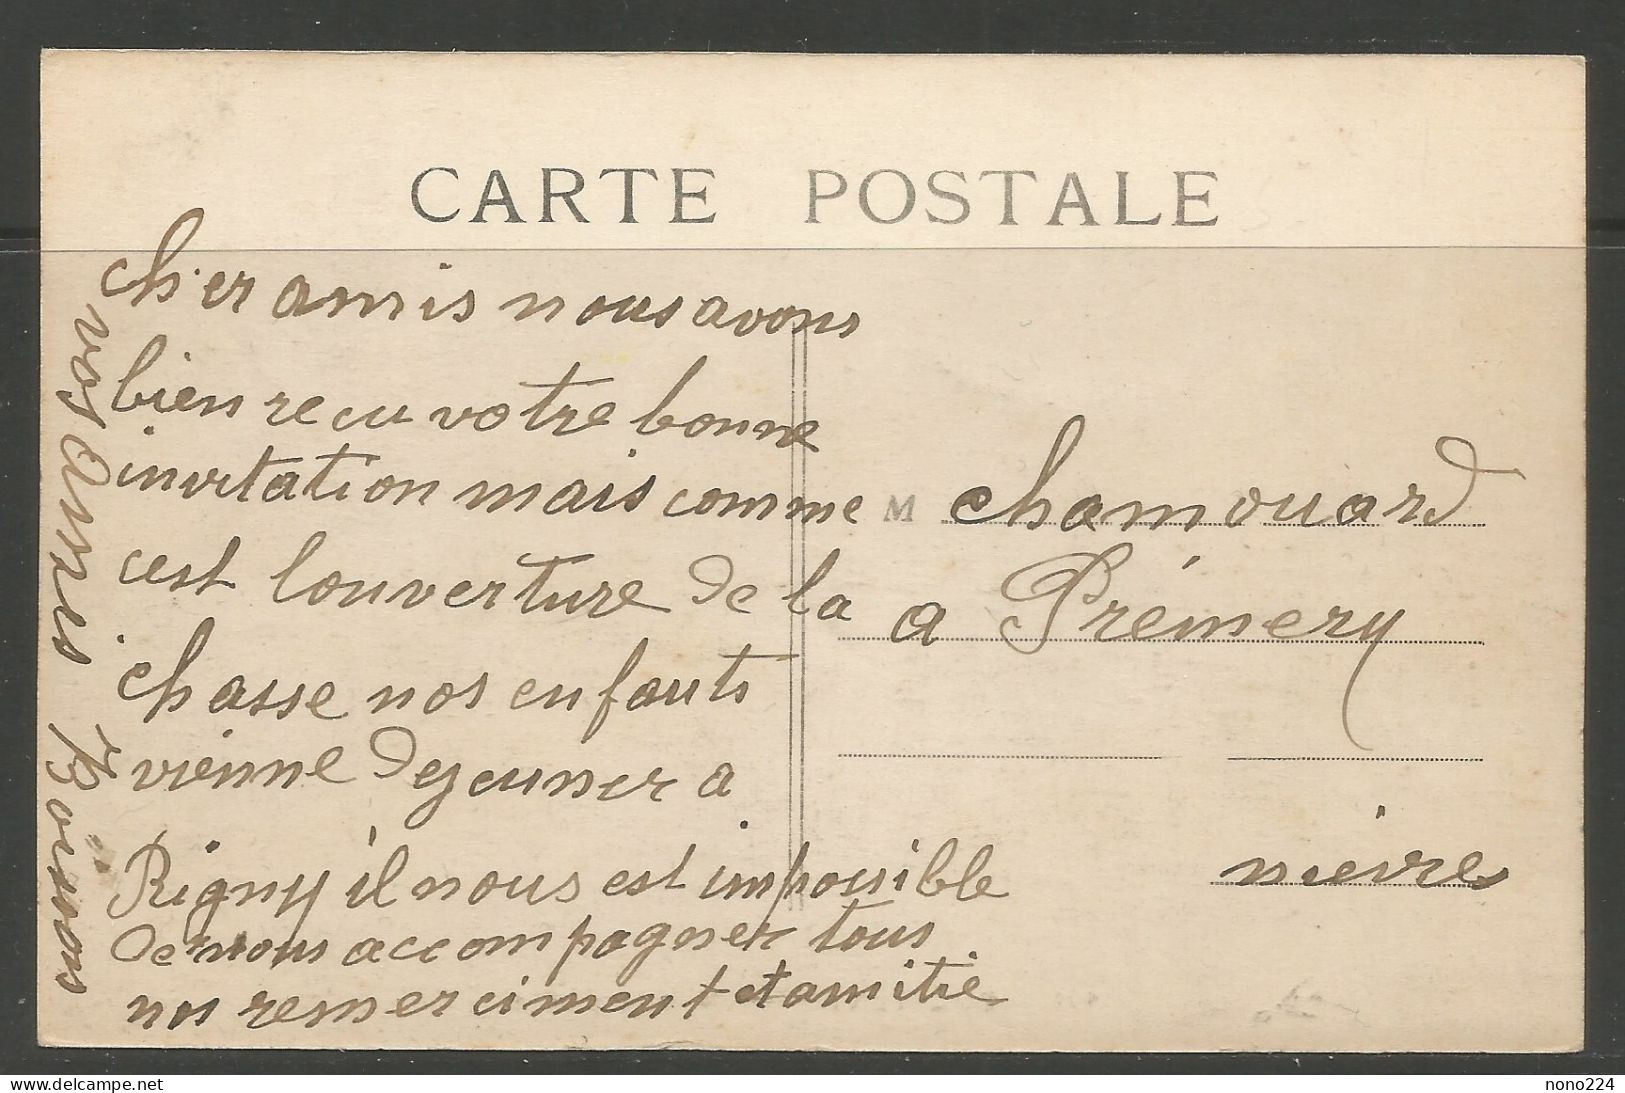 CARTE POSTALE
cher amis nous avons
bien recu votre bonne
invitation mais comme
cest louverture de la
chasse nos enfants
vienne dejeuner a
Rigny il nous est impossible
de nous accompagner tous
nos remerciment et amitie
vos Amis Boinos
M chamouard
a Prémery
nievre
nono224
www.delcampe.net